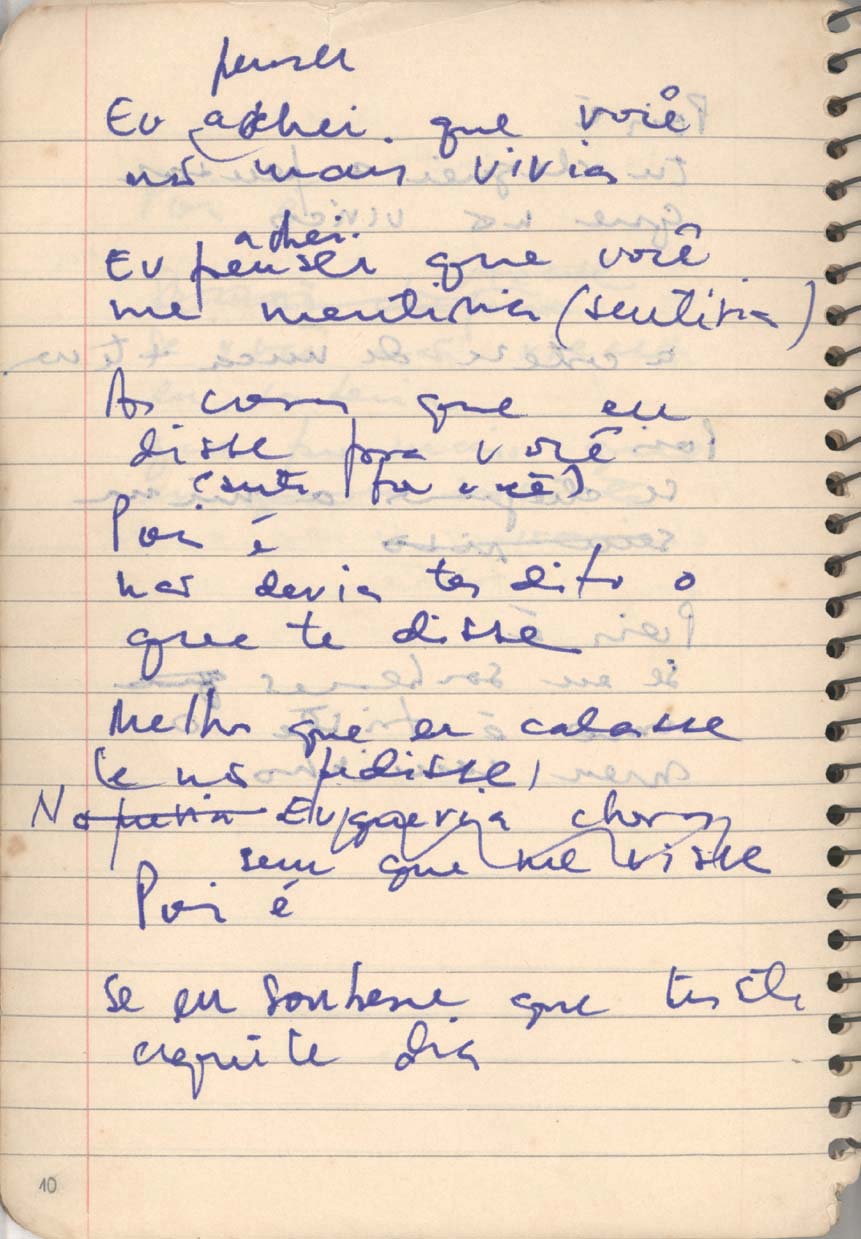 pensei
Eu achei que você
não mais vivia
achei
Eu pensei que você
me mentiria (sentiria)
As coisas que eu
disse pra você
(senti por você)
Pois é
não devia ter dito o
que te disse
Melhor que eu calasse
(e não pedisse)
No Eu queria chorar
sem que me visse
Pois é
Se eu soubesse que
dia
10